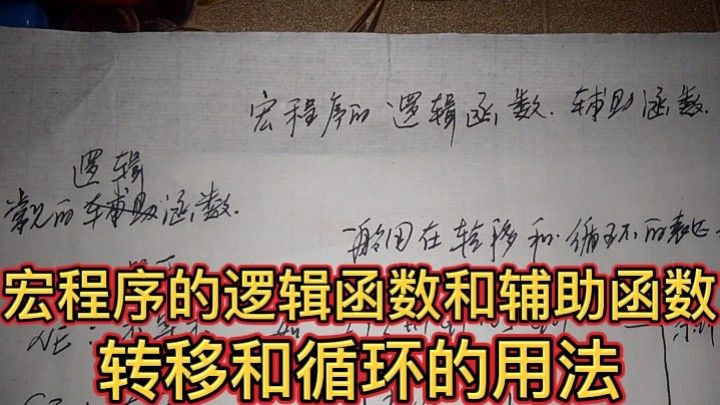 宏程序的逻辑函数.辅助函数.
逻辑
常见的辅助函数.
一般用在转移和循环的表达
宏程序的逻辑函数和辅助函数
NE:不等于
转移和循环的用法